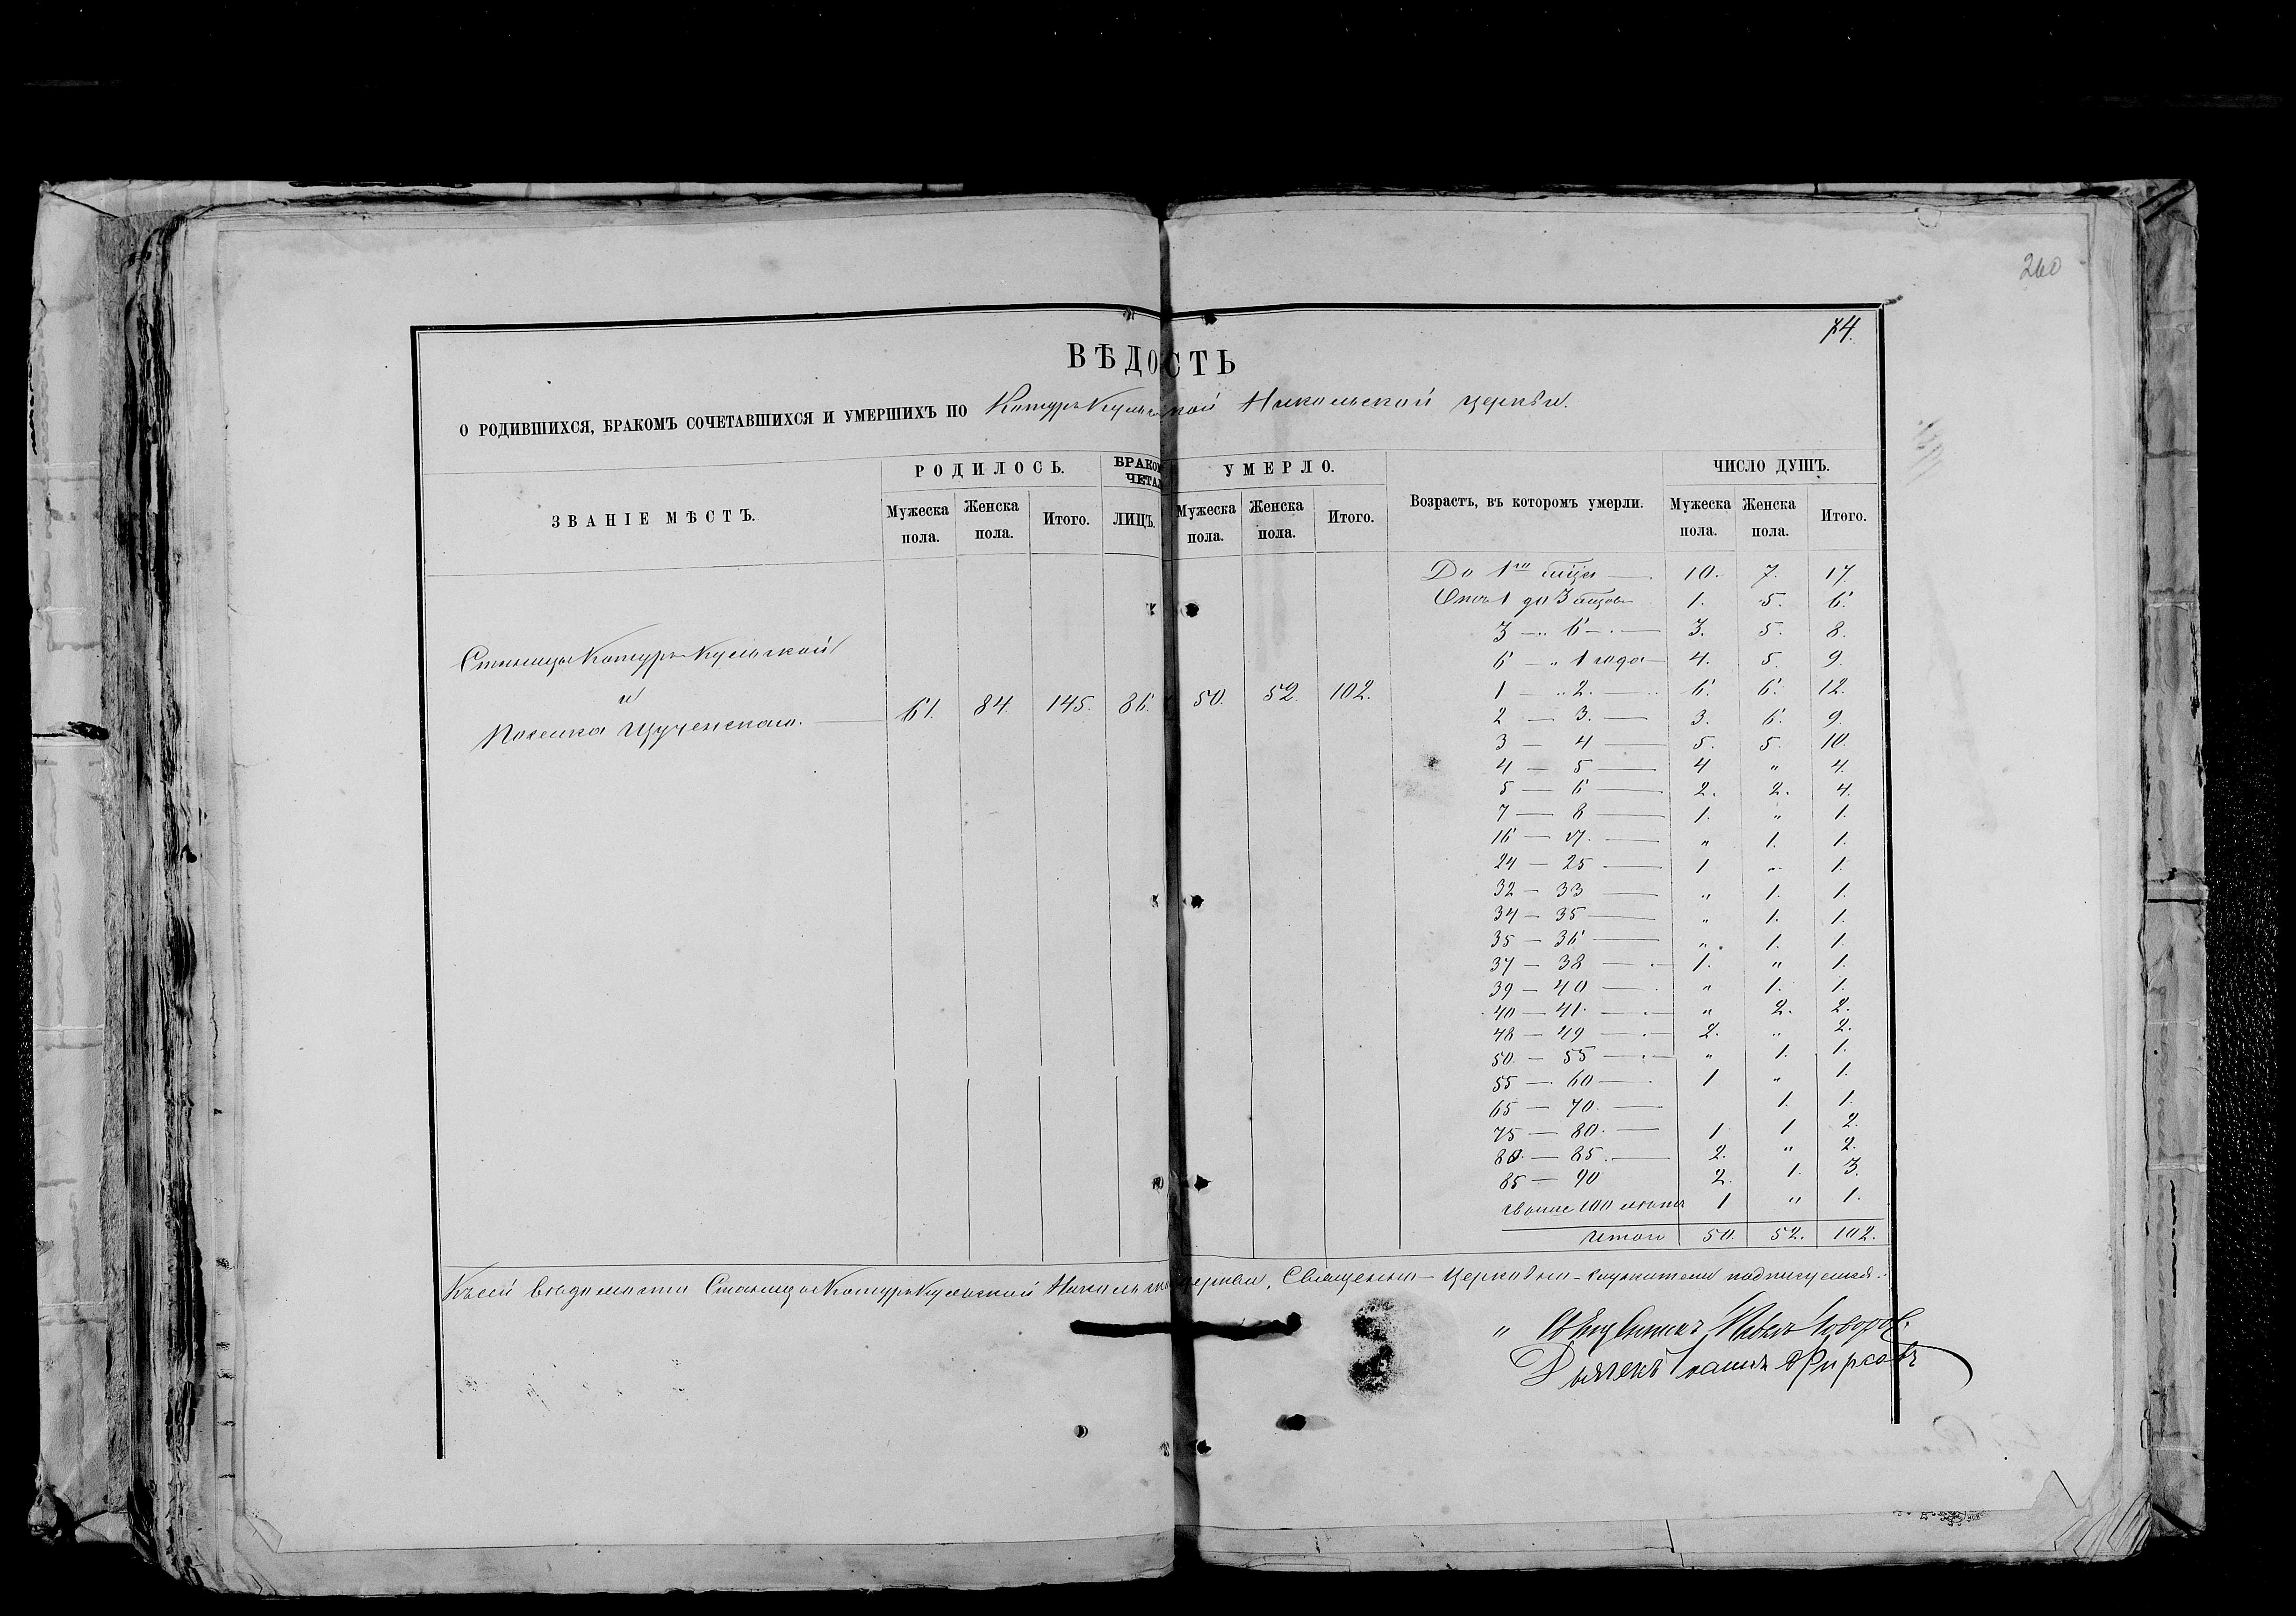 260
74.
ВѢДОСТЬ
О РОДИВШИХСЯ, БРАКОМЪ СОЧЕТАВШИХСЯ И УМЕРШИХЪ ПО Котуръ Кульской Никольской церкви.
ЗВАНІЕ МѢСТЪ. РОДИЛОСЬ. БРАКОМ ЧЕТАЛ УМЕРЛО. Возрастъ, въ которомъ умерли. ЧИСЛО ДУШЪ.
Мужеска пола. Женска пола. Итого. ЛИЦЪ. Мужеска пола. Женска пола. Итого. Мужеска пола. Женска пола. Итого.
Станицы Котуръ Кульской
и
Поселка Щученскаго. 61. 84. 145. 86. 50. 52. 102.
До 1го мѣця 10. 7. 17.
Отъ 1 до 3 мѣцовъ 1. 5. 6.
3 — " 6 — 3. 5. 8.
6 — " 1 года — 4. 5. 9.
1 — " 2. — 6. 6. 12.
2 — 3. — 3. 6. 9.
3 — 4 — 5. 5. 10.
4 — 5 — 4 " 4.
5 — 6 — 2. 2. 4.
7 — 8 — 1. " 1.
16 — 17. — " 1. 1.
24 — 25 — 1 " 1.
32 — 33 — " 1. 1.
34 — 35 — " 1. 1.
35 — 36 — " 1. 1.
37 — 38 — 1. " 1.
39 — 40 — " 1. 1.
40 — 41. — " 2. 2.
48 — 49 — 2. " 2.
50. — 55 — " 1. 1.
55 — 60 — 1 " 1.
65 — 70. — 1. 1.
75 — 80. — 1 1 2.
80. — 85. — 2. " 2.
85 — 90 2. 1. 3.
свыше 100 лѣтъ 1 " 1.
Итого 50. 52. 102.
Къ сей вѣдомости Станицы Котуръ Кульской Никольской церкви, Священно-Церковно-служители подписуемся.
" Священникъ
Дьячекъ Фирсовъ